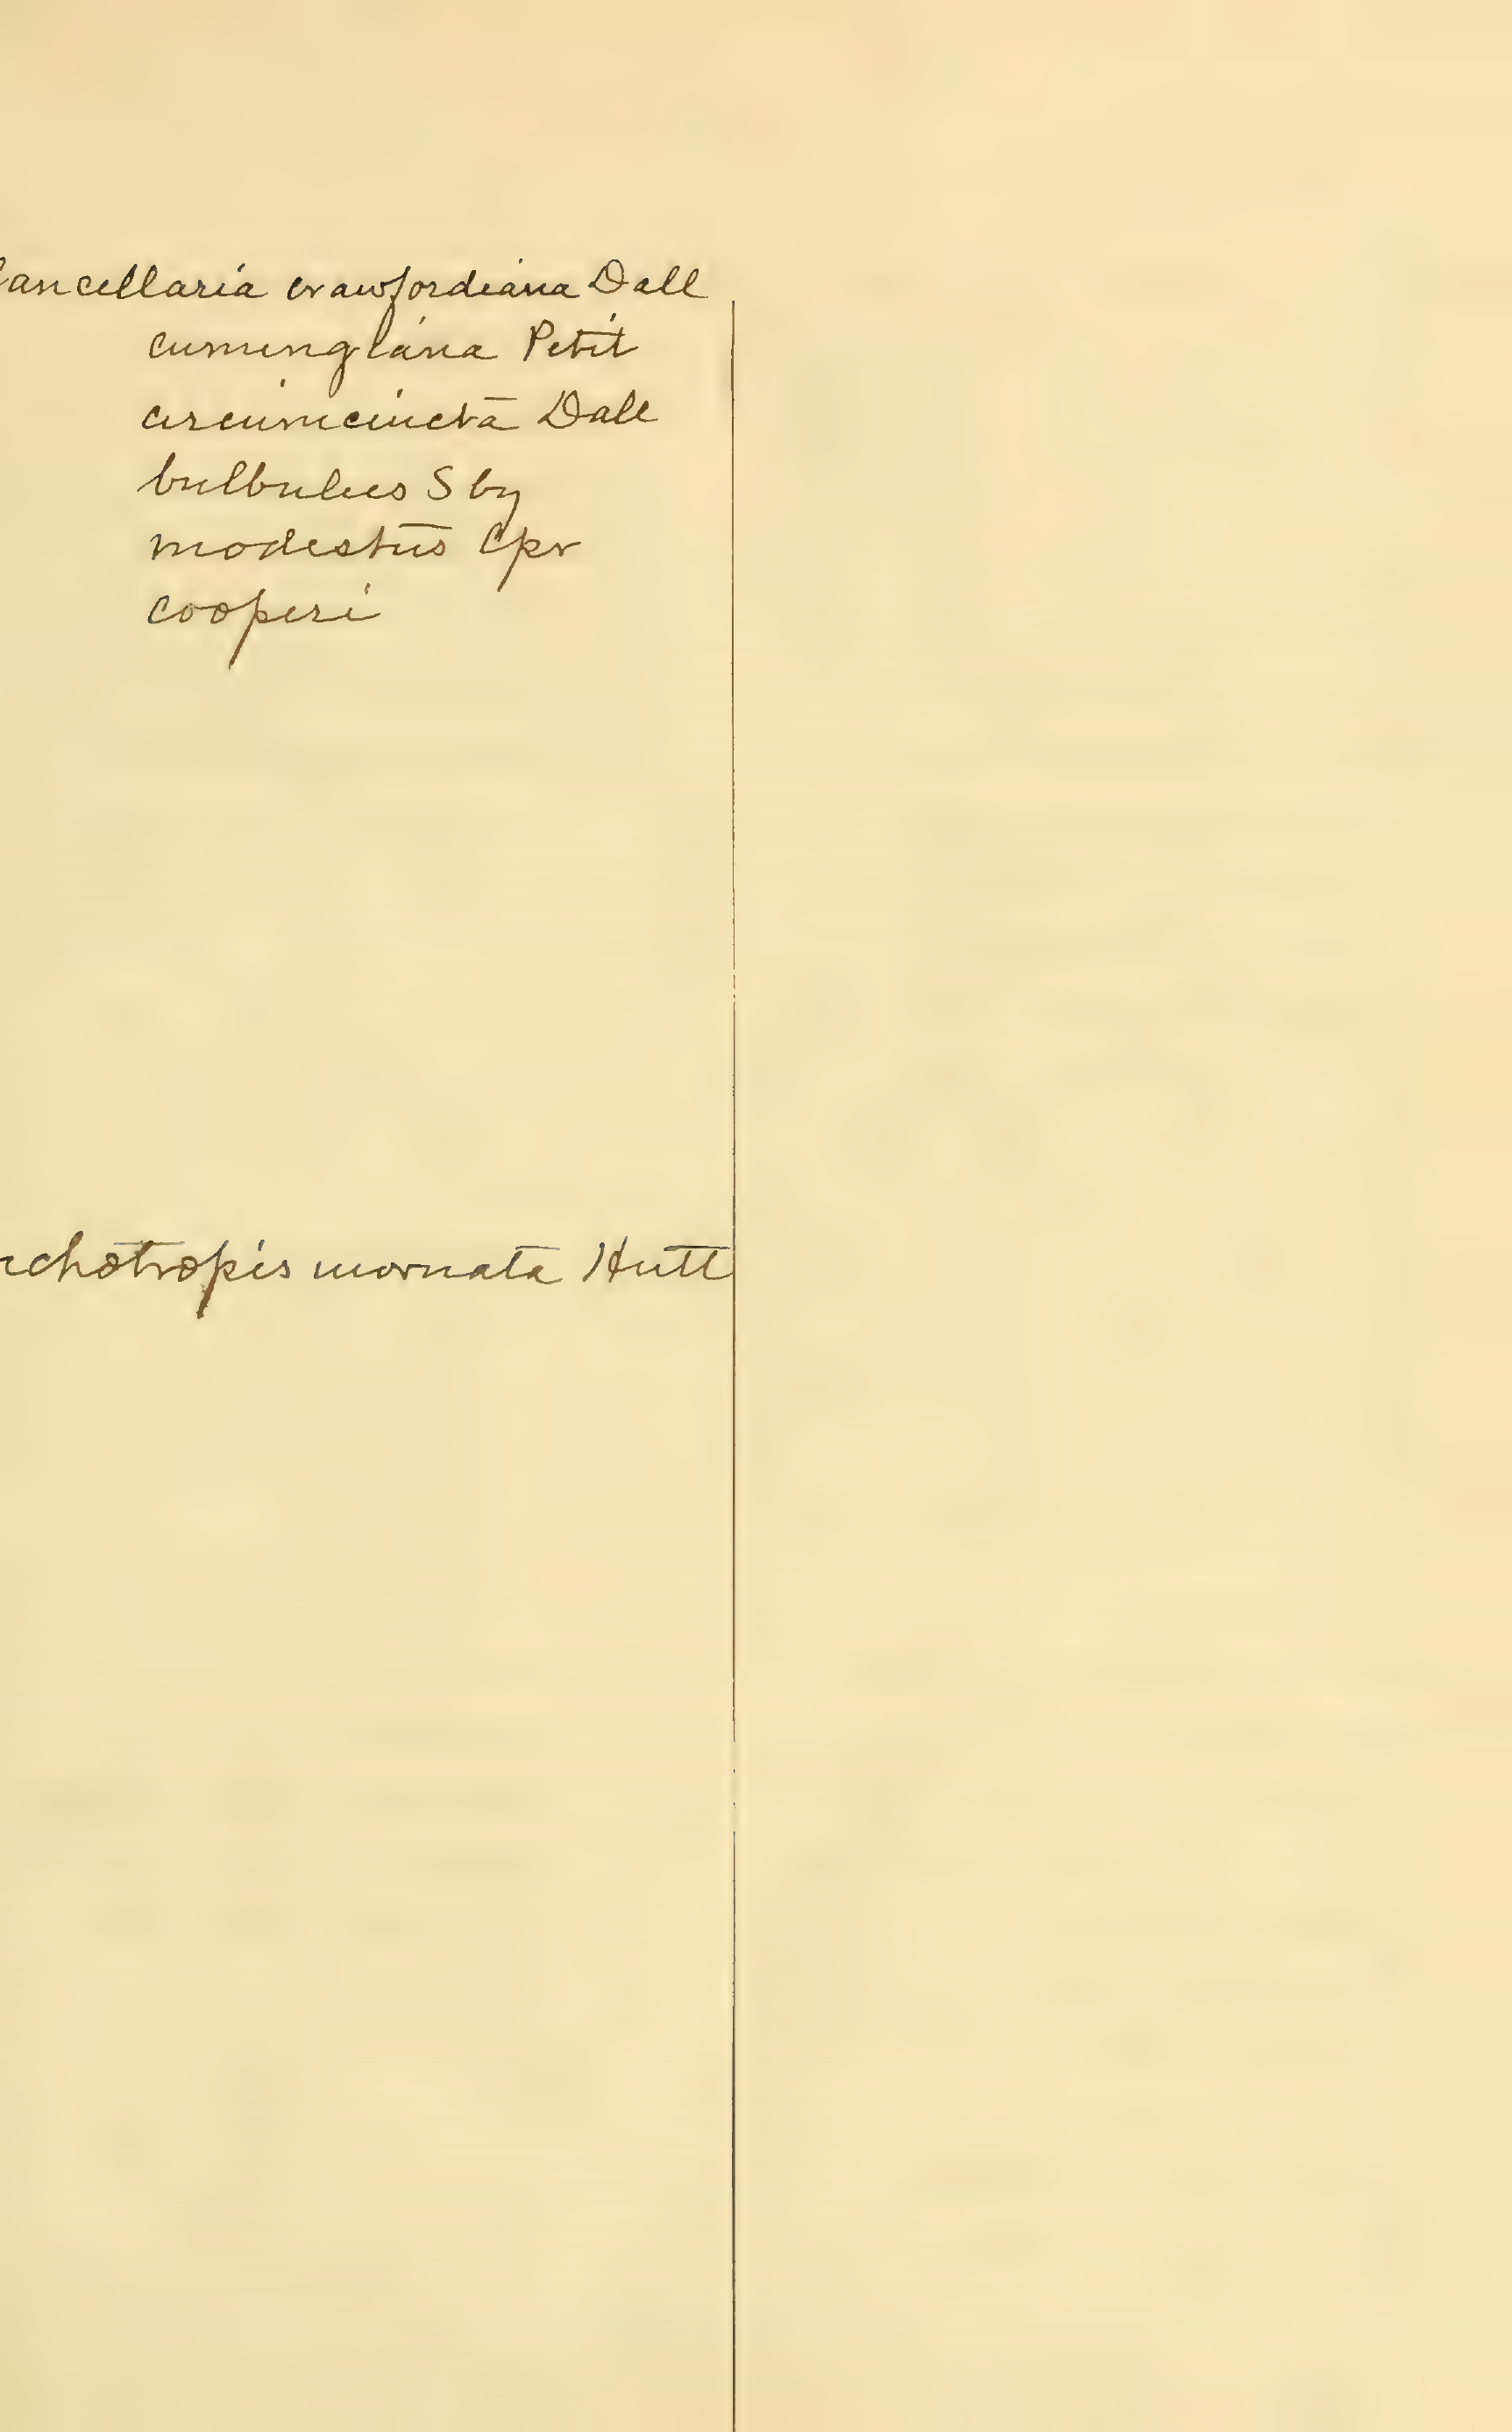 Cancellaria crawfordiana Dall
cumingiana Petit
circumcincta Dall
bulbulus Sby
modestus Cpr
cooperi
ichotropis inornata Hutt